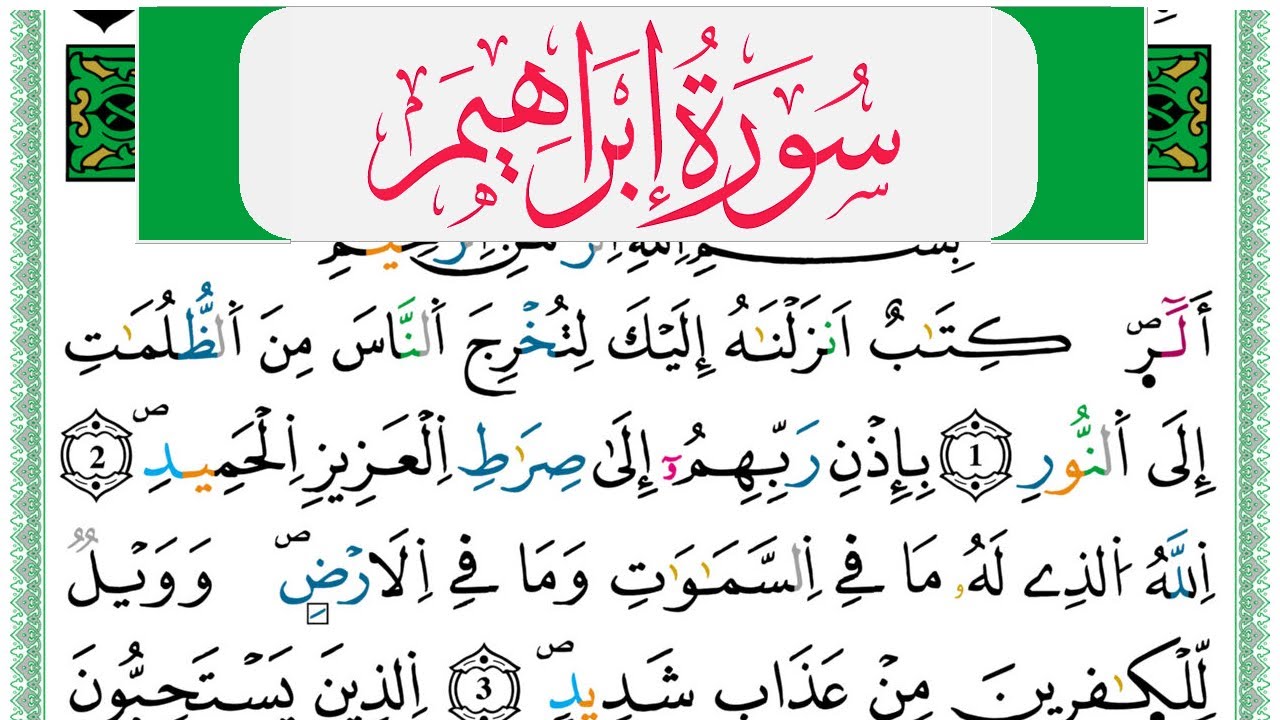 سُورَةُ إِبْرَاهِيمَ
بِسْمِ اِللَّهِ اِلرَّحْمَٰنِ اِلرَّحِيمِ
أَلَٓرۖ كِتَٰبٌ اَنزَلْنَٰهُ إِلَيْكَ لِتُخْرِجَ اَلنَّاسَ مِنَ اَلظُّلُمَٰتِ
إِلَى اَلنُّورِ 1 بِإِذْنِ رَبِّهِمُۥٓ إِلَىٰ صِرَٰطِ اِلْعَزِيزِ اِلْحَمِيدِۖ 2
اِللَّهُ اَلذِے لَهُۥ مَا فِے اِلسَّمَٰوَٰتِ وَمَا فِے اِلَارْضِۖ وَوَيْلٌ
لِّلْكَٰفِرِينَ مِنْ عَذَابٍ شَدِيدٍۖ 3 اِلذِينَ يَسْتَحِبُّونَ